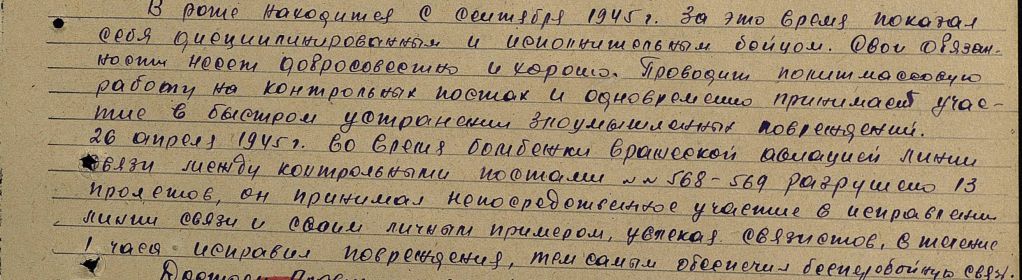 В роте находится с сентября 1945 г. За это время показал
себя дисциплинированным и исполнительным бойцом. Свои обязан-
ности несет добросовестно и хорошо. Проводит политмассовую
работу на контрольных постах и одновременно принимает учас-
тие в быстром устранении злоумышленных повреждений.
26 апреля 1945 г. во время бомбежки вражеской авиацией линии
связи между контрольными постами №№ 568-569 разрушено 13
пролетов, он принимал непосредственное участие в исправлении
линии связи и своим личным примером, увлекая связистов, в течение
1 часа исправил повреждения, тем самым обеспечил бесперебойную связь.
Достоин